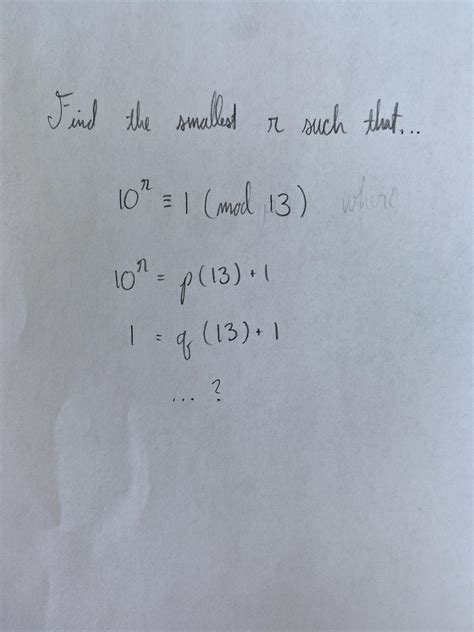 Find the smallest r such that...
10^r ≡ 1 (mod 13) where
10^r = p(13) + 1
1 = q(13) + 1
... ?